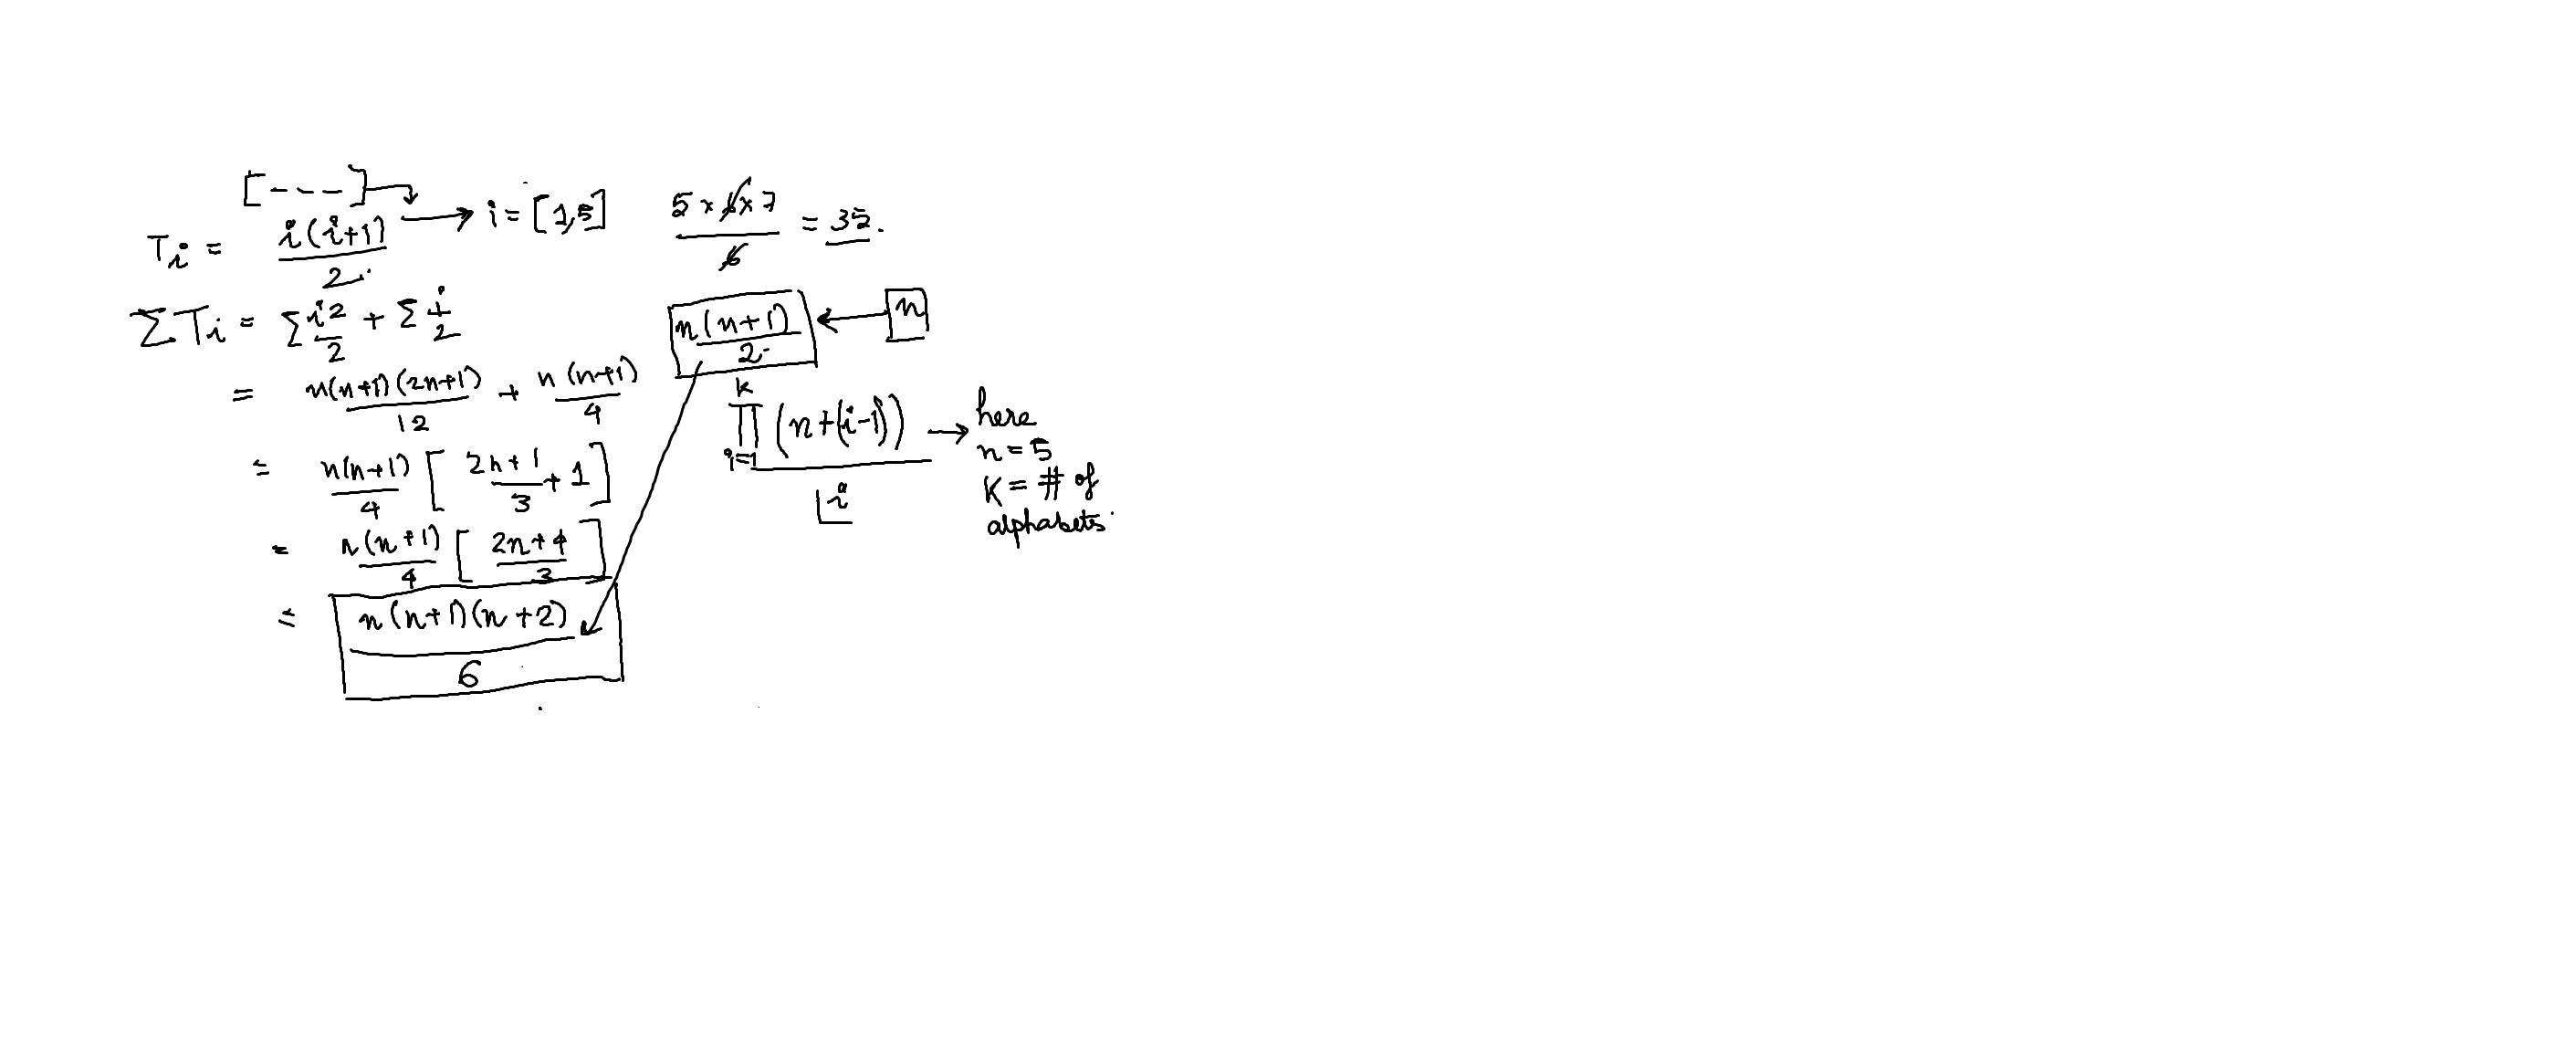 [---]
Tᵢ = i(i+1)/2 → i = [1,5]
ΣTᵢ = Σ i²/2 + Σ i/2
= n(n+1)(2n+1)/12 + n(n+1)/4
= n(n+1)/4 [ 2n+1/3 + 1 ]
= n(n+1)/4 [ 2n+4/3 ]
= n(n+1)(n+2)/6
5×6×7/6 = 35.
n(n+1)/2 ← n
k
∏ (n+(i-1))
i=1
⌊i
→ here
n=5
K = # of
alphabets